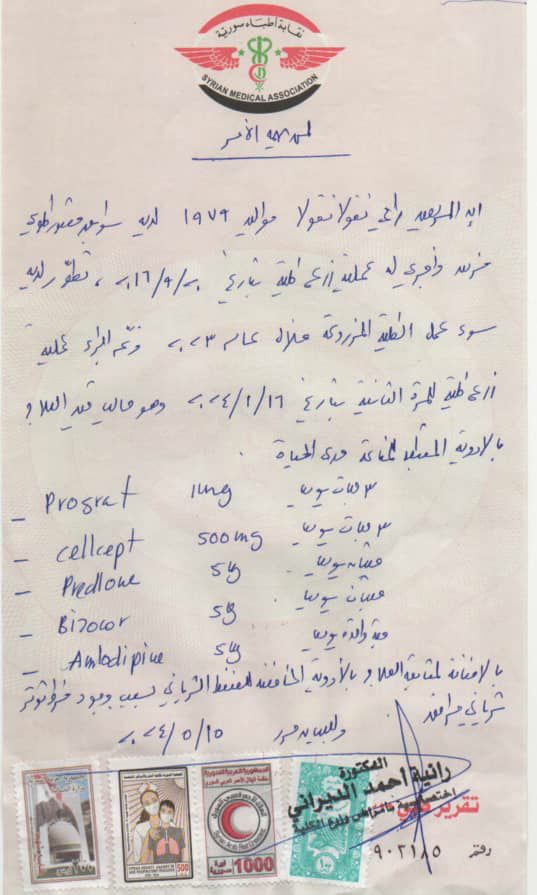 نقابة أطباء سورية
SYRIAN MEDICAL ASSOCIATION
لمن يهمه الأمر
إن المريض راجي نقولا نقولا مواليد ١٩٧٩ لديه
مزمن وأجري له عملية زرع كلية بتاريخ ٢٠١٦/٩/٢٠ ، تطور لديه
سوء عمل الكلية المزروعة خلال عام ٢٠٢٣ وتم إجراء عملية
زرع كلية للمرة الثانية بتاريخ ٢٠٢٤/١/١٦ وهو حاليا قيد العلاج
بالأدوية المثبطة للمناعة مدى الحياة
- Prograf 1mg ٣ حبات يوميا
- cellcept 500mg ٣ حبات يوميا
- Predlone 5mg يوميا
- Bizocor 5mg يوميا
- Amlodipine 5mg حبة واحدة يوميا
بالإضافة لمتابعة العلاج بالأدوية الخافضة للضغط الشرياني بسبب وجود فرط توتر
شرياني مرافق
وللبيان حرر ٢٠٢٤/٥/١٥
الجمهورية العربية السورية
500
1000
الدكتورة
رانية احمد الديراني
اختصاصية بأمراض وزرع الكلية
تقرير طبي
دفتر ٩٠٢١٨٥